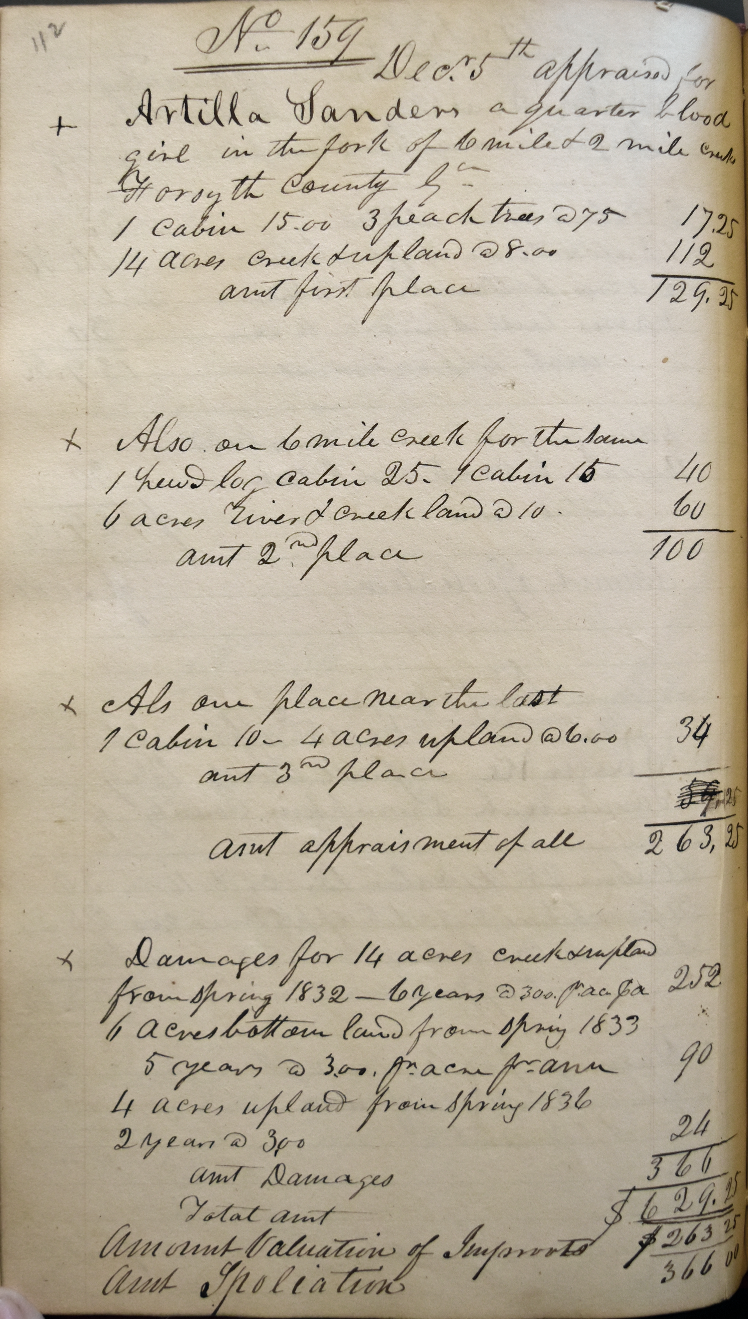 112
No 159
Decr. 5th appraised for
+ Artilla Sanders a quarter blood
girl in the fork of 6 mile & 2 mile creek
Forsyth County Ga
1 cabin 15.00 3 peach trees @ 75 17.25
14 acres creek & upland @ 8.00 112
amt first place 129.25
x Also on 6 mile creek for the same
1 hewd log cabin 25- 1 cabin 15 40
6 acres River & creek land @ 10- 60
amt 2nd place 100
x Als one place near the last
1 cabin 10- 4 acres upland @ 6.00 34
amt 3rd place
amt appraisment of all 263,25
x Damages for 14 acres creek & upland
from spring 1832 - 6 years @ 300. pr ac pa 252
6 acres bottom land from spring 1833
5 years @ 3.00. pr acre pr ann 90
4 acres upland from spring 1836
2 years @ 300 24
amt Damages 366
Total amt $ 629.25
Amount Valuation of Improvts $ 263 25
Amt Spoliation 366 00